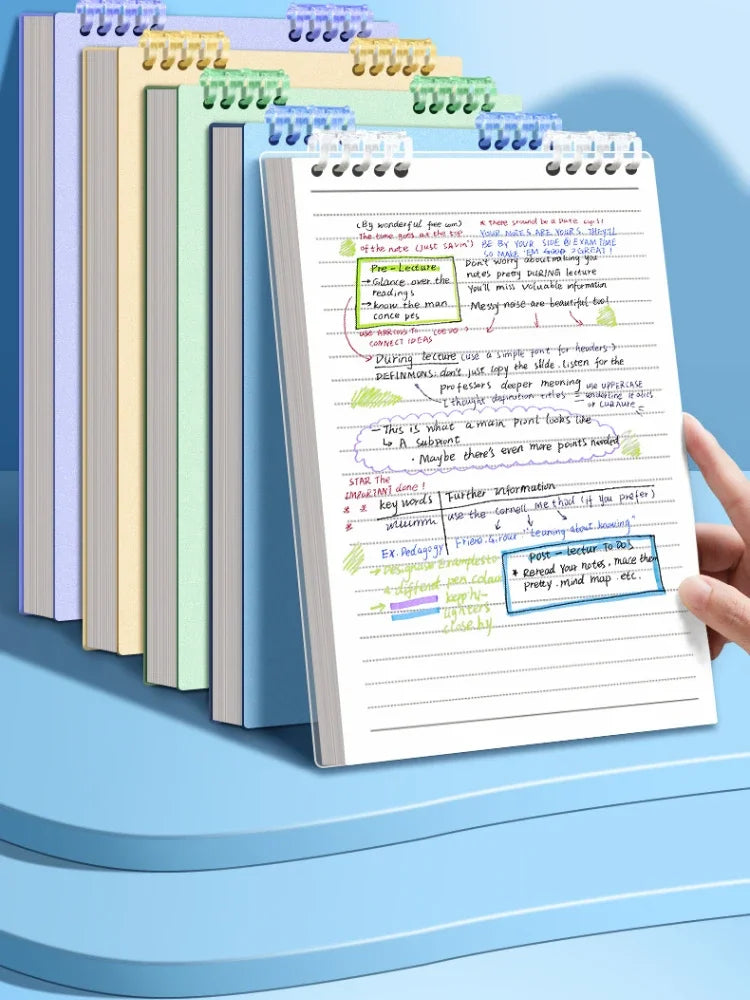 (By wonderful free com)
The time goes at the top
of the note (just SAVin')
* there should be a
YOUR NOTES ARE YOURS. THEY'LL
BE BY YOUR SIDE @ EXAM TIME
SO MAKE 'EM GREAT!
Pre-Lecture
→ Glance over the
readings
→ know the man
conce pts
Don't worry about making you
notes pretty DURING lecture
You'll miss valuable information
Messy nose are beautiful too!
USE TO
CONNECT IDEAS
→ During lecture (use a simple font for headers)
DEFINMONS: don't just copy the slide. Listen for the
professors deeper meaning
I thought defination titles =
use UPPERCASE
underline
or
- This is what a main piont looks like
↳ A subpiont
· Maybe there's even more points needed
STAR The
IMPORTANT done!
* *
*
key words
Further information
use the Cornell me thod (if you prefer)
Ex. Pedagogy
"Leaning about knowing"
→ Designise Examplesto
a diffend pen. colour
→
kep hi-
lighters
close by
Post - lectur To Do's
* Reread Your notes. mace them
pretty. mind map. etc.